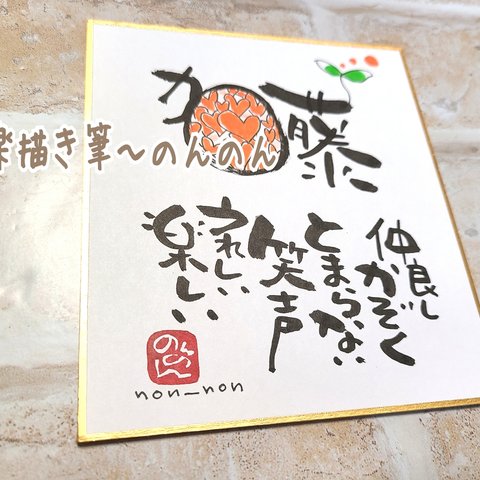 加藤
楽描き筆～のんのん
仲良しかぞく
とまらない
笑声
うれしい
楽しい
のんのん
non_non